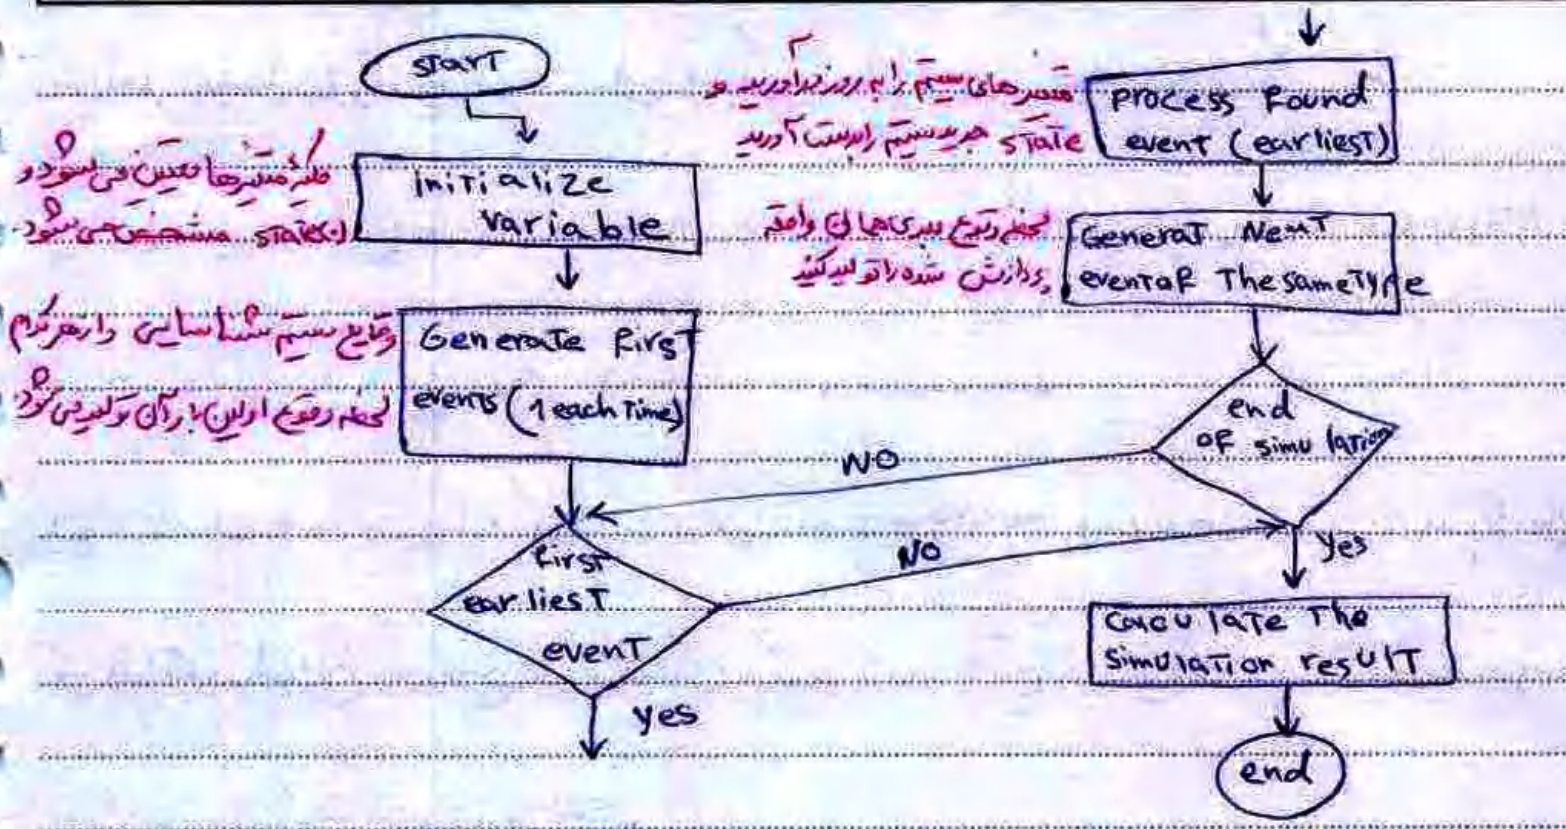 start
کلیهٔ متغیرها تعیین می‌شود و
state مشخص می‌شود.
initialize
variable
وقایع سیستم شناسایی و از هر کدام
لحظه وقوع اولین بار آن تولید می‌شود
Generate first
events (1 each Time)
first
earliest
event
NO
yes
متغیرهای سیستم را به روز درآورید و
state جدید سیستم را بدست آورید
process found
event (earliest)
لحظه وقوع بعدی
واقعه
پردازش شده را تولید کنید
Generat Next
event of The same Type
end
of simulation
NO
yes
Calculate The
simulation result
end